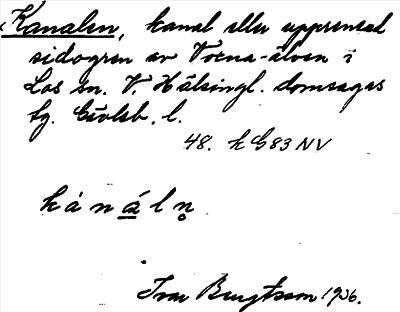 Kanalen, kanal eller upprensad
sidogren av Voxna-älven i
Los sn. V. Hälsingl. domsagas
tg. Gävleb. l.
48. k G83 NV
kanáln̥
Ivar Bengtsson 1936.